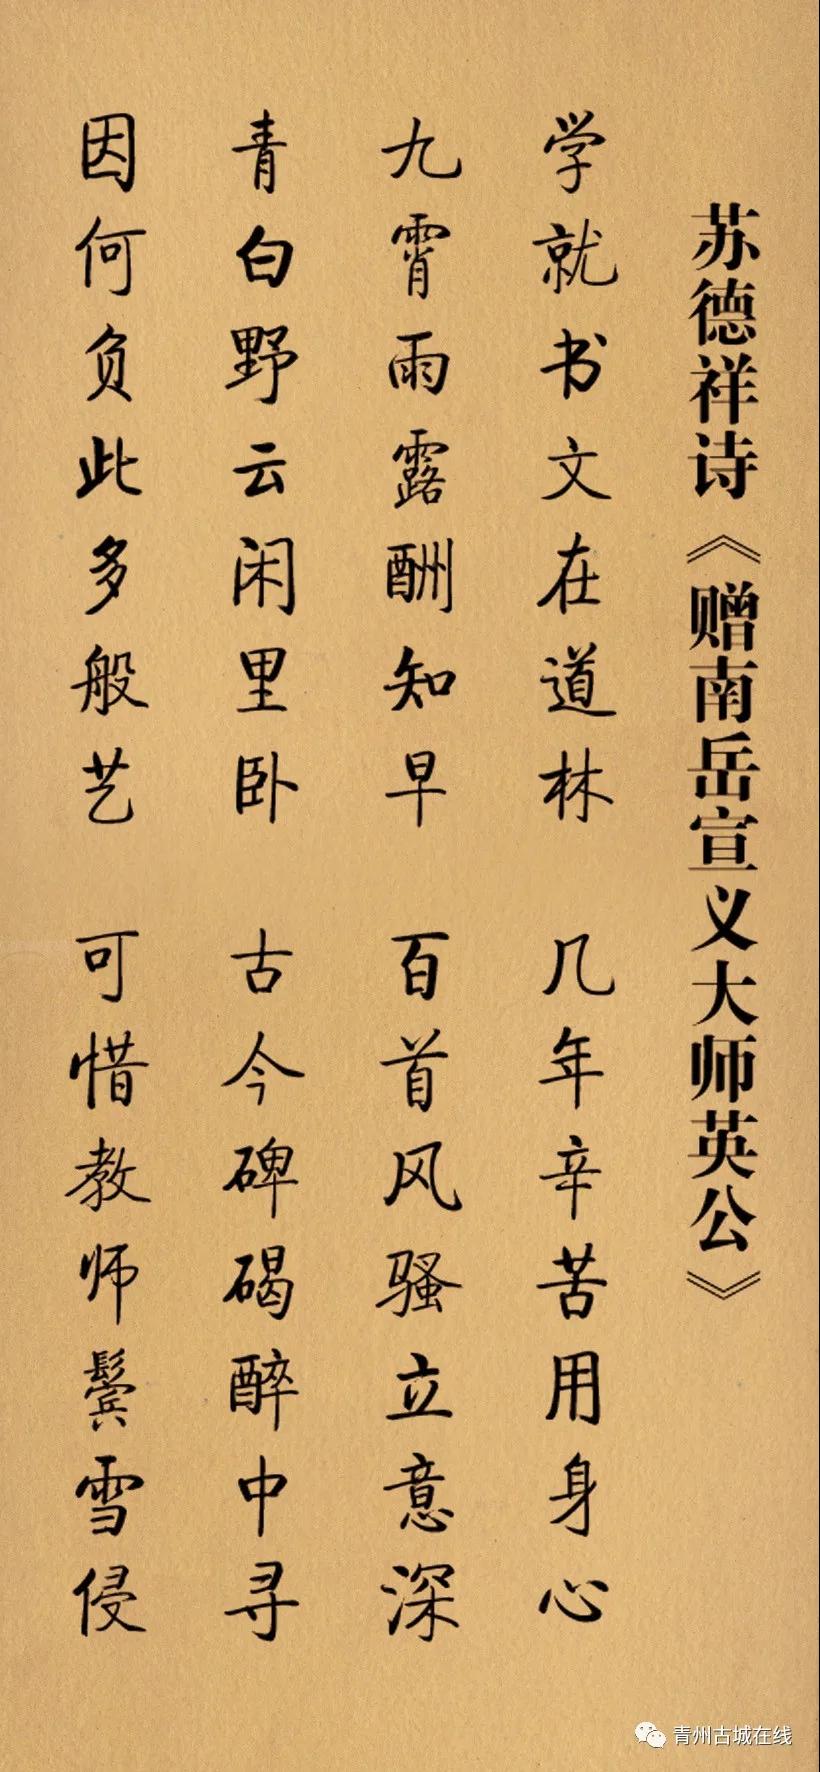 苏德祥诗《赠南岳宣义大师英公》
学就书文在道林 几年辛苦用身心
九霄雨露酬知早 百首风骚立意深
青白野云闲里卧 古今碑碣醉中寻
因何负此多般艺 可惜教师鬓雪侵
青州古城在线